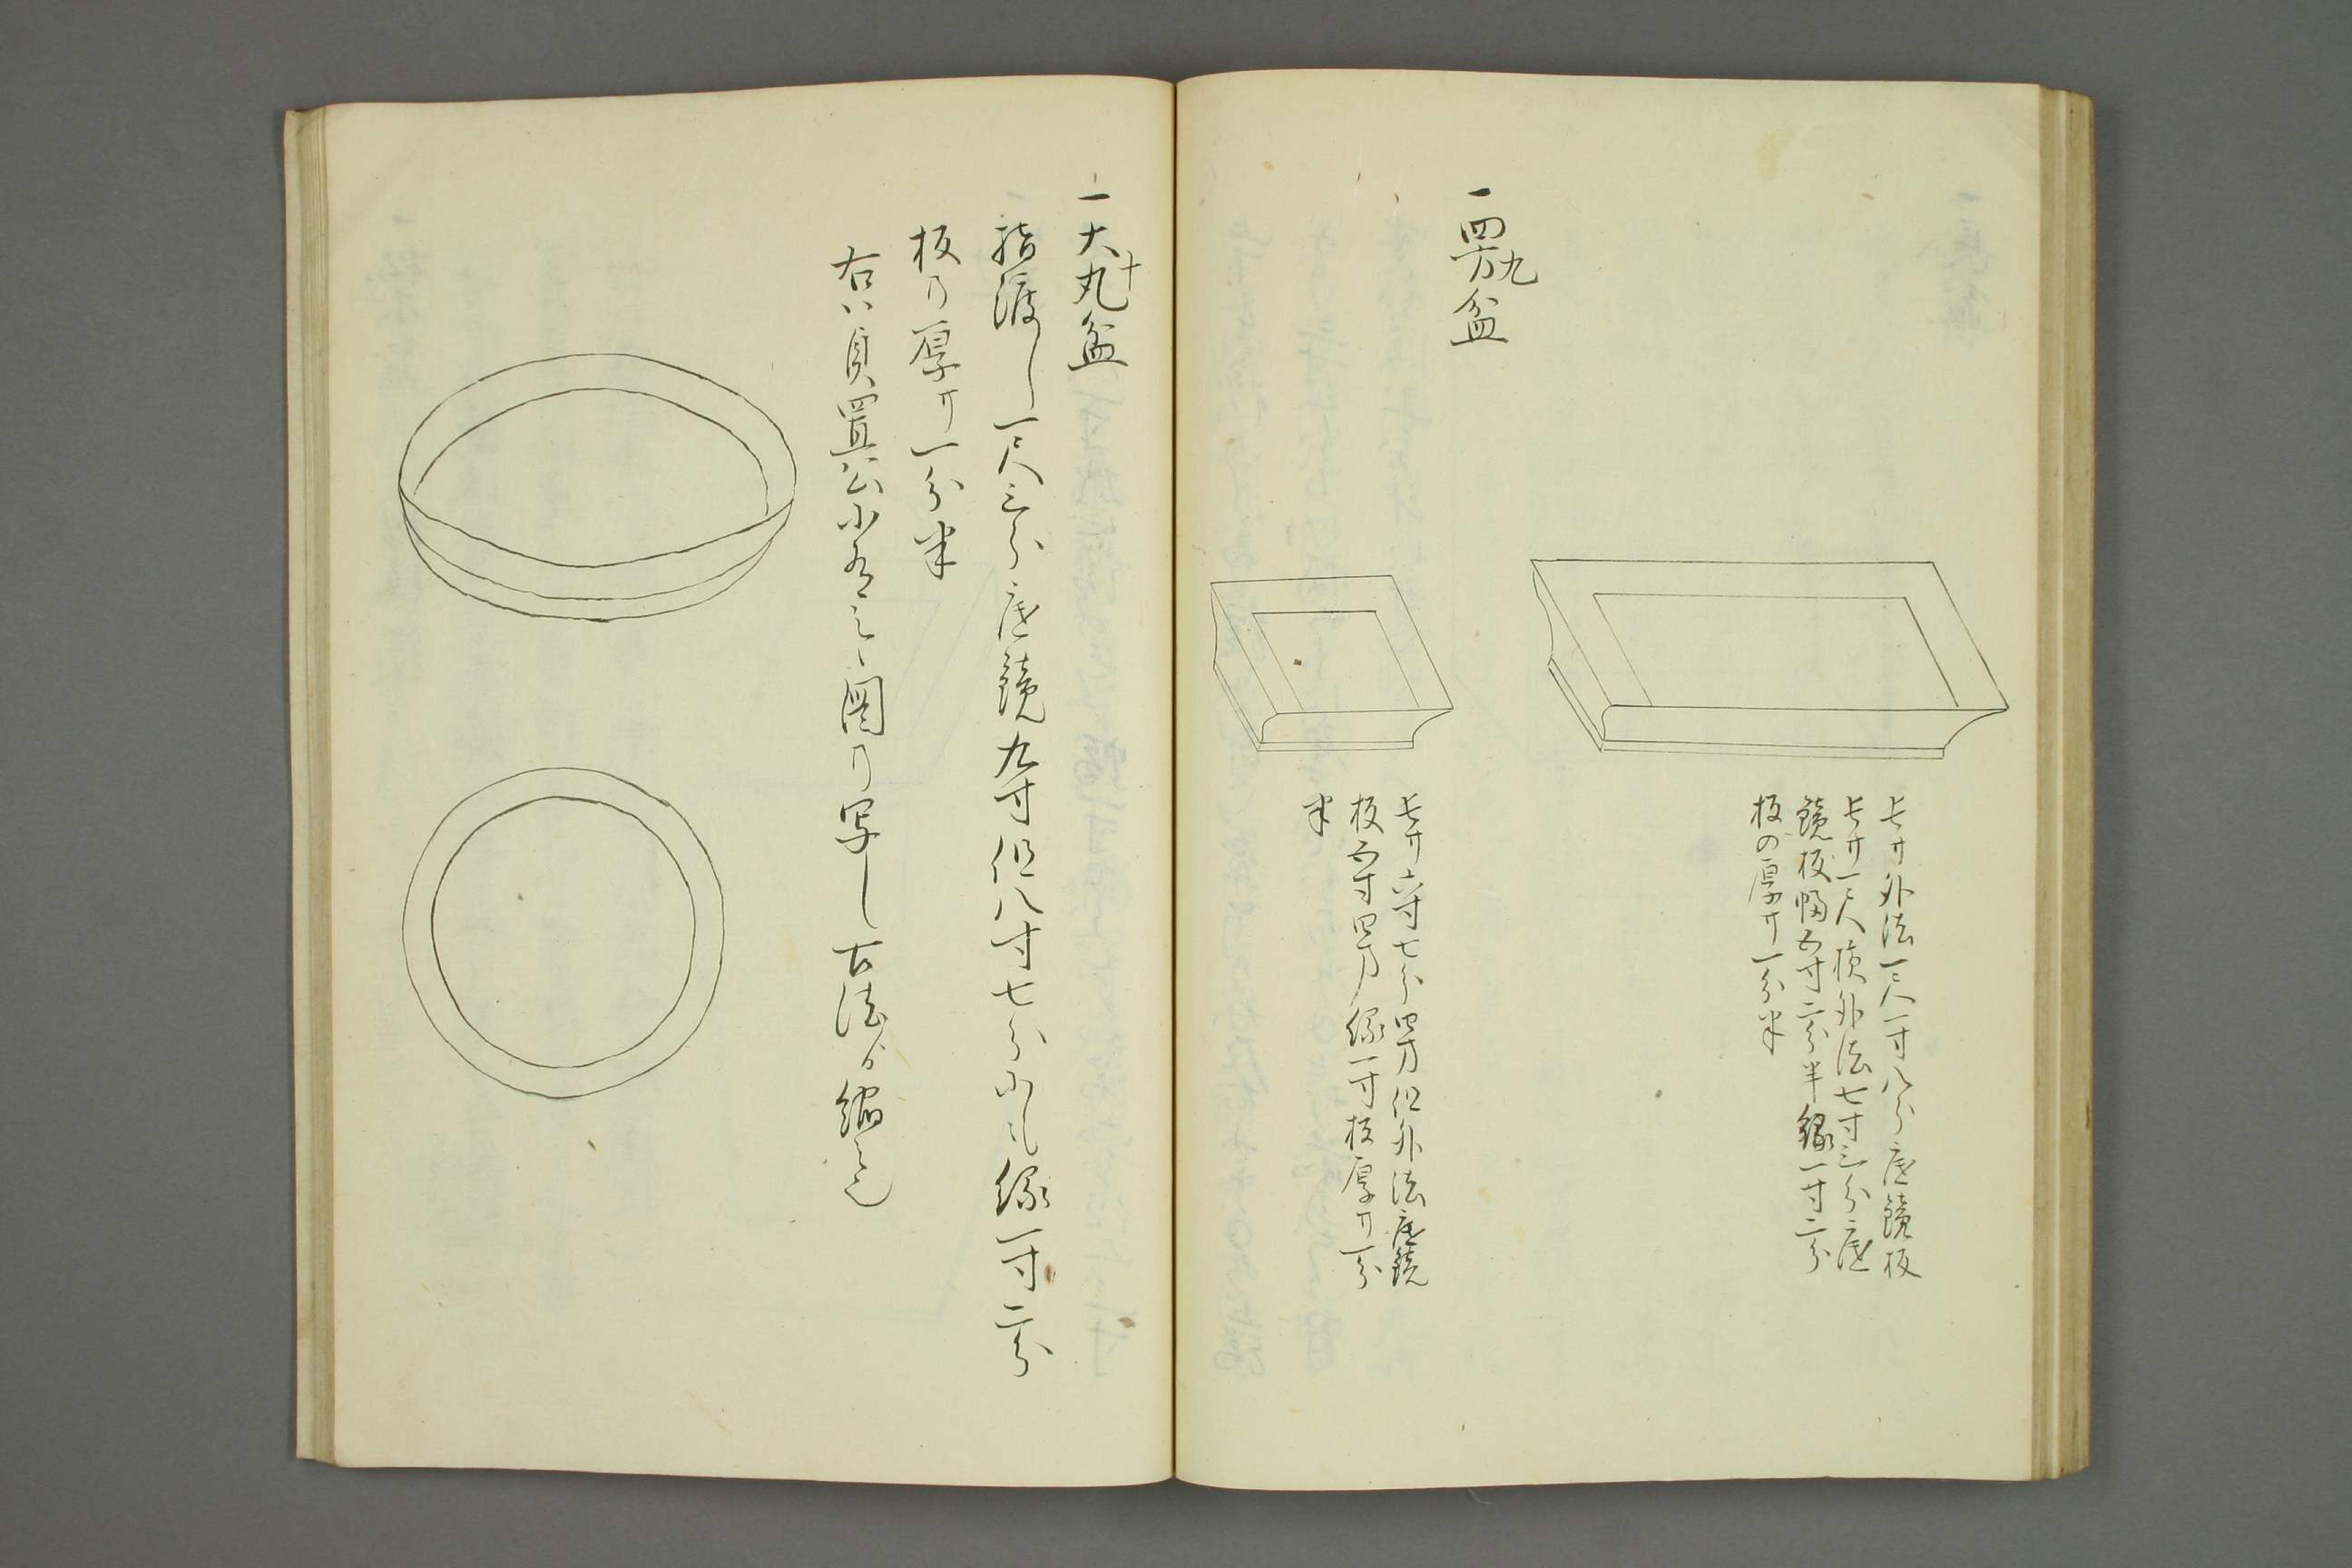 長サ外法一尺一寸八分底鏡板
長サ一尺横外法七寸三分底
鏡板幅五寸二分半縁一寸二分
板の厚サ一分半
一四方盆
九
長サ六寸七分四方但外法底鏡
板五寸四方縁一寸板厚サ一分
半
一大丸盆
十
指渡し一尺三分底鏡九寸但八寸七分ニも縁一寸二分
板ノ厚サ一分半
右ハ真置公小有之図ノ写し古法ゟ縮之